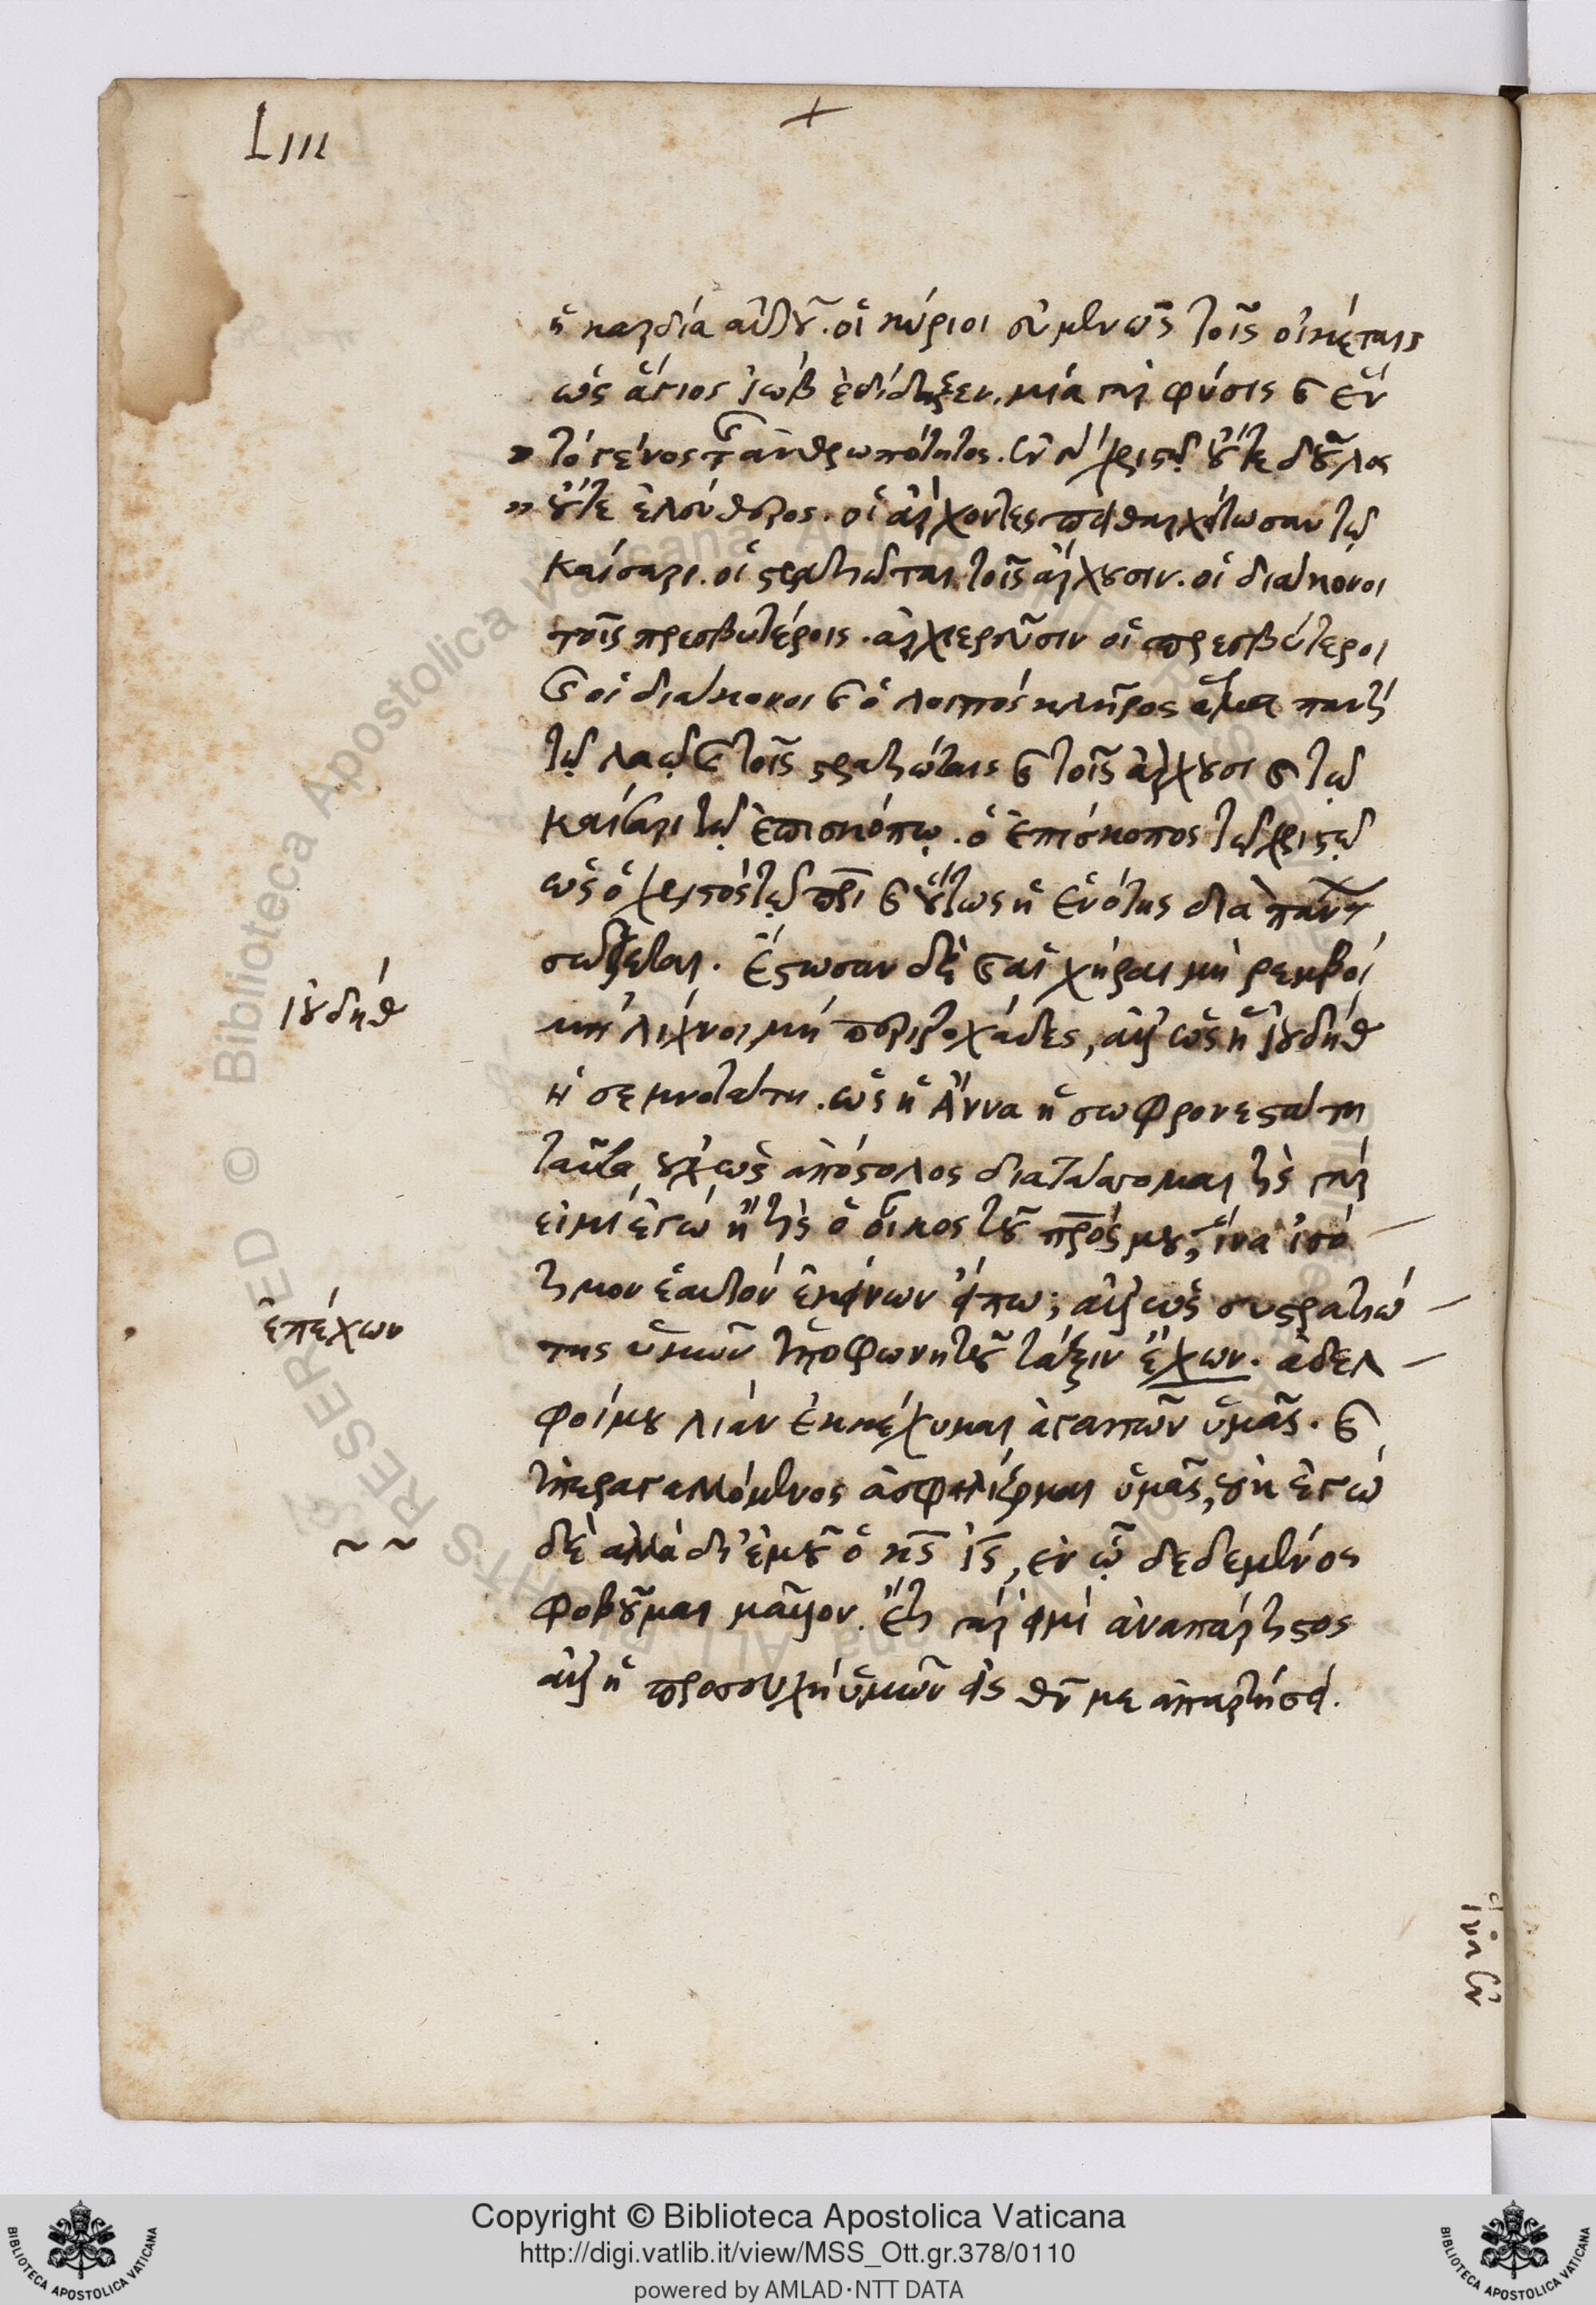 LIII
ἡ καρδία αὐτοῦ. οἱ κύριοι εὐμενῶς τοῖς οἰκέταις
ὡς ἅγιος ἰὼβ ἐδίδαξεν. μία γὰρ φύσις καὶ ἓν
τὸ γένος τῆς ἀνθρωπότητος. ἐν γὰρ χριστῷ οὔτε δοῦλος
οὔτε ἐλεύθερος. οἱ ἄρχοντες πειθαρχείτωσαν τῷ
καίσαρι. οἱ στρατιῶται τοῖς ἄρχουσιν. οἱ διάκονοι
τοῖς πρεσβυτέροις. ἀρχιερεῦσιν οἱ πρεσβύτεροι
καὶ οἱ διάκονοι καὶ ὁ λοιπὸς κλῆρος ἅμα παντὶ
τῷ λαῷ καὶ τοῖς στρατιώταις καὶ τοῖς ἄρχουσι καὶ τῷ
καίσαρι τῷ ἐπισκόπῳ. ὁ ἐπίσκοπος τῷ χριστῷ
ὡς ὁ χριστὸς τῷ πρι καὶ οὕτως ἡ ἑνότης διὰ πάντων
σώζεται. ἔστωσαν δὲ καὶ αἱ χῆραι μὴ ῥεμβοί
μὴ λίχνοι, μὴ περιτροχάδες, ἀλλ' ὡς ἡ ἰουδήθ
ἰουδήθ
ἡ σεμνοτάτη. ὡς ἡ Ἄννα ἡ σωφρονεστάτη
ταῦτα οὐχ ὡς ἀπόστολος διατάττομαι τίς γάρ
εἰμι ἐγὼ ἢ τίς ὁ οἶκος τοῦ πρός μου, ἵνα ἰσό
τιμον ἑαυτὸν ἐκείνων εἴπω; ἀλλ' ὡς συστρατιώ
ἐπέχων
της ὑμῶν ὑποφωνητοῦ τάξιν ἔχων. ἀδελ
φοί μου λίαν ἐκκέχυμαι ἀγαπῶν ὑμᾶς. καὶ
ὑπεραγαλλόμενος ἀσφαλίζομαι ὑμᾶς, οὐκ ἐγὼ
δὲ ἀλλὰ δι' ἐμοῦ ὁ κς ἰς, ἐν ᾧ δεδεμένος
φοβοῦμαι μᾶλλον. ἔτι γάρ εἰμι ἀναπάρτιστος
ἀλλ' ἡ προσευχὴ ὑμῶν εἰς θν με ἀπαρτήσει.
ἵνα ἐν
Copyright © Biblioteca Apostolica Vaticana
http://digi.vatlib.it/view/MSS_Ott.gr.378/0110
powered by AMLAD·NTT DATA